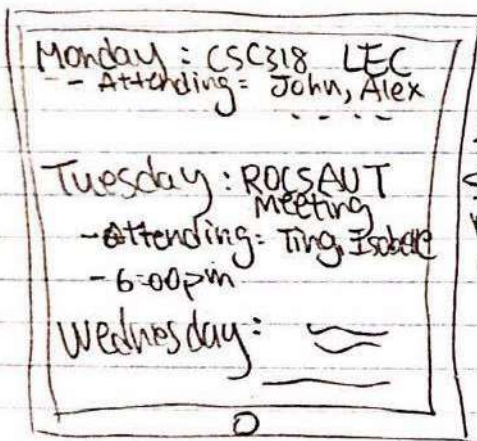 Monday : CSC318 LEC
- Attending = John, Alex
Tuesday : ROCSAUT
Meeting
- Attending = Ting, Isobelle
- 6:00pm
Wednesday :